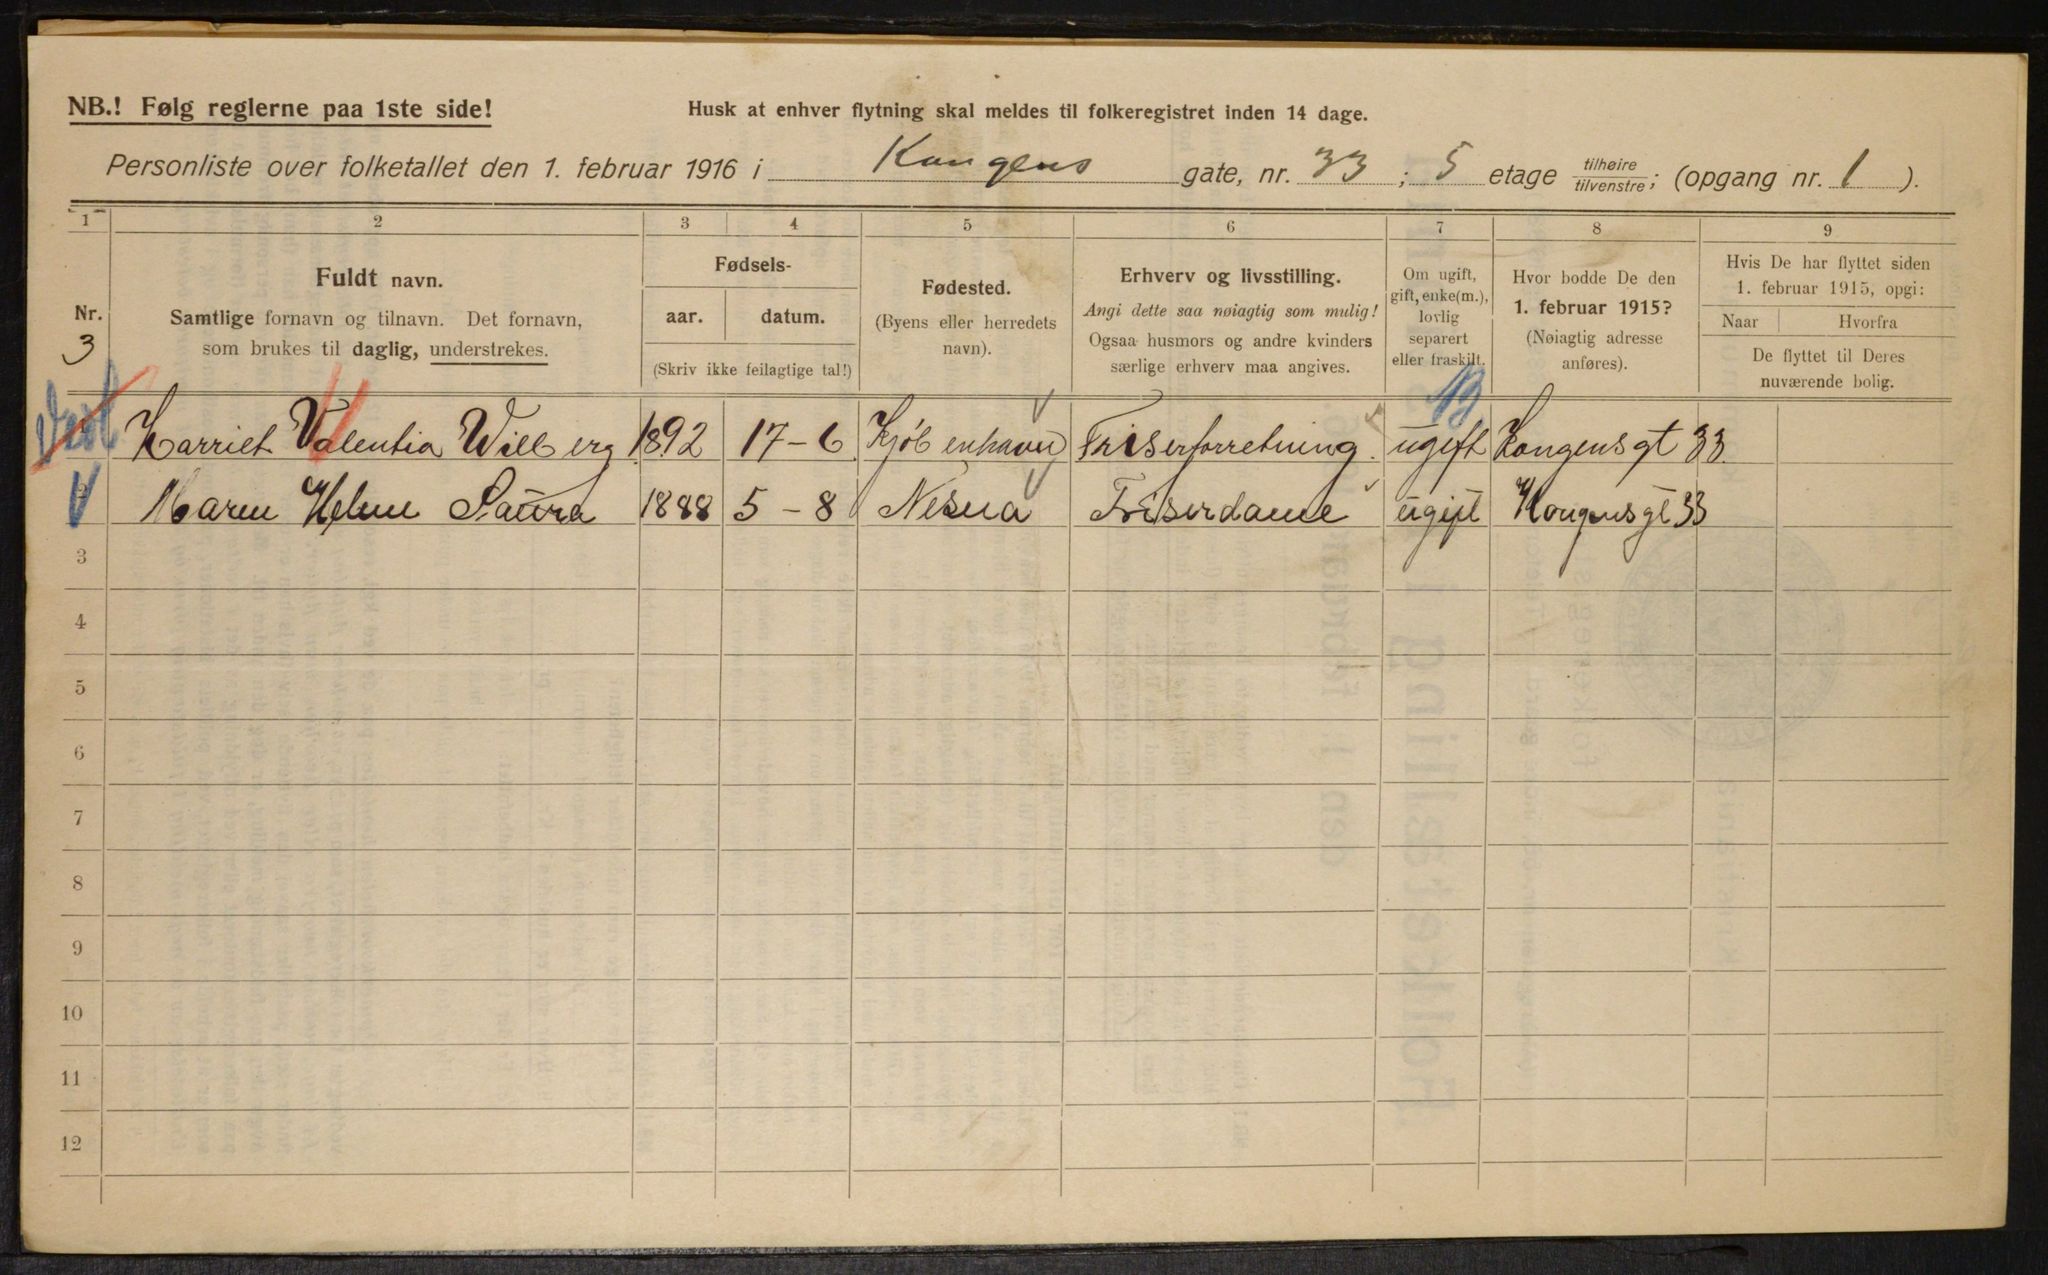 NB.! Følg reglerne paa 1ste side!
Husk at enhver flytning skal meldes til folkeregistret inden 14 dage.
Personliste over folketallet den 1. februar 1916 i Kongens gate, nr. 33; 5 etage tilhøire/tilvenstre; (opgang nr. 1).
1 2 3 4 5 6 7 8 9
Nr.
3
Fuldt navn.
Samtlige fornavn og tilnavn. Det fornavn,
som brukes til daglig, understrekes.
Fødsels-
aar. datum.
(Skriv ikke feilagtige tal!)
Fødested.
(Byens eller herredets
navn).
Erhverv og livsstilling.
Angi dette saa nøiagtig som mulig!
Ogsaa husmors og andre kvinders
særlige erhverv maa angives.
Om ugift,
gift, enke(m.),
lovlig
separert
eller fraskilt.
Hvor bodde De den
1. februar 1915?
(Nøiagtig adresse
anføres).
Hvis De har flyttet siden
1. februar 1915, opgi:
Naar Hvorfra
De flyttet til Deres
nuværende bolig.
Harriet Valentia Willberg 1892 17-6 Kjøbenhavn Friserforretning. ugift Kongensgt 33
2 Maren Helene 1888 5-8 Nesna Friserdame ugift Kongensgt 33
3
4
5
6
7
8
9
10
11
12